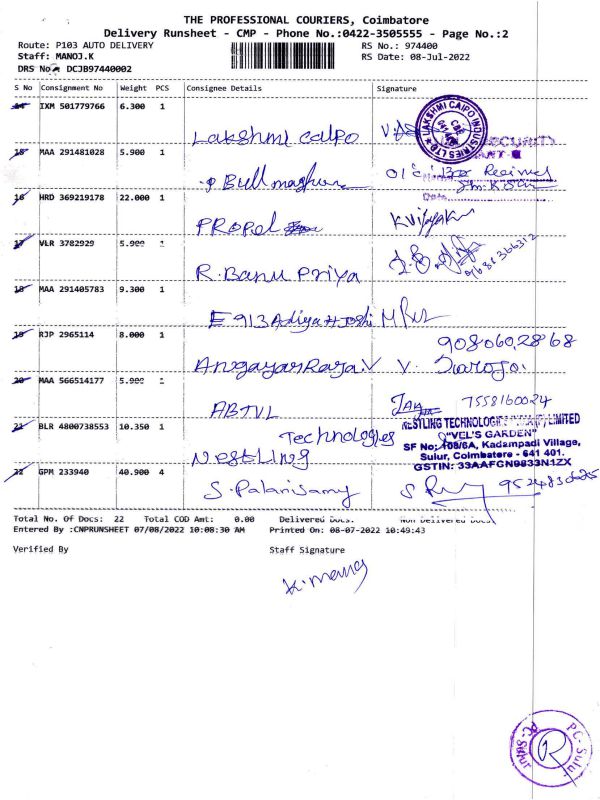 THE PROFESSIONAL COURIERS, Coimbatore
Delivery Runsheet - CMP - Phone No.:0422-3505555 - Page No.:2
Route: P103 AUTO DELIVERY
RS No.: 974400
Staff: MANOJ.K
RS Date: 08-Jul-2022
DRS No DCJB97440002
S No Consignment No Weight PCS Consignee Details Signature
14 IXM 501779766 6.300 1
Lakshmi Caipo
LAKSHMI CAIPO INDUSTRIES LTD
SECURITY
15 MAA 291481028 5.900 1
Received
Date
16 HRD 369219178 22.000 1
PROPEL
K Vijayak
17 VLR 3782929 5.900 1
R. Banu Priya
9681366312
18 MAA 291405783 9.300 1
E 913 Adiya H Joshi
19 RJP 2965114 8.000 1
9080602868
Angayar Raya V V. Saroja.
20 MAA 566514177 5.900 1
ABTVL
7558160024
21 BLR 4800738553 10.350 1
Technologies
Nestling
NESTLING TECHNOLOGIES LIMITED
"VEL'S GARDEN"
SF No: 108/6A, Kadampadi Village,
Sulur, Coimbatore - 641 401.
GSTIN: 33AAFCN9833N1ZX
22 GPM 233940 40.900 4
S. Palanisamy
Total No. Of Docs: 22 Total COD Amt: 0.00 Delivered Docs. Non Delivered Docs
Entered By :CNPRUNSHEET 07/08/2022 10:08:30 AM Printed On: 08-07-2022 10:49:43
Verified By
Staff Signature
K. Manoj
PC-Sulur
PC-Sulur